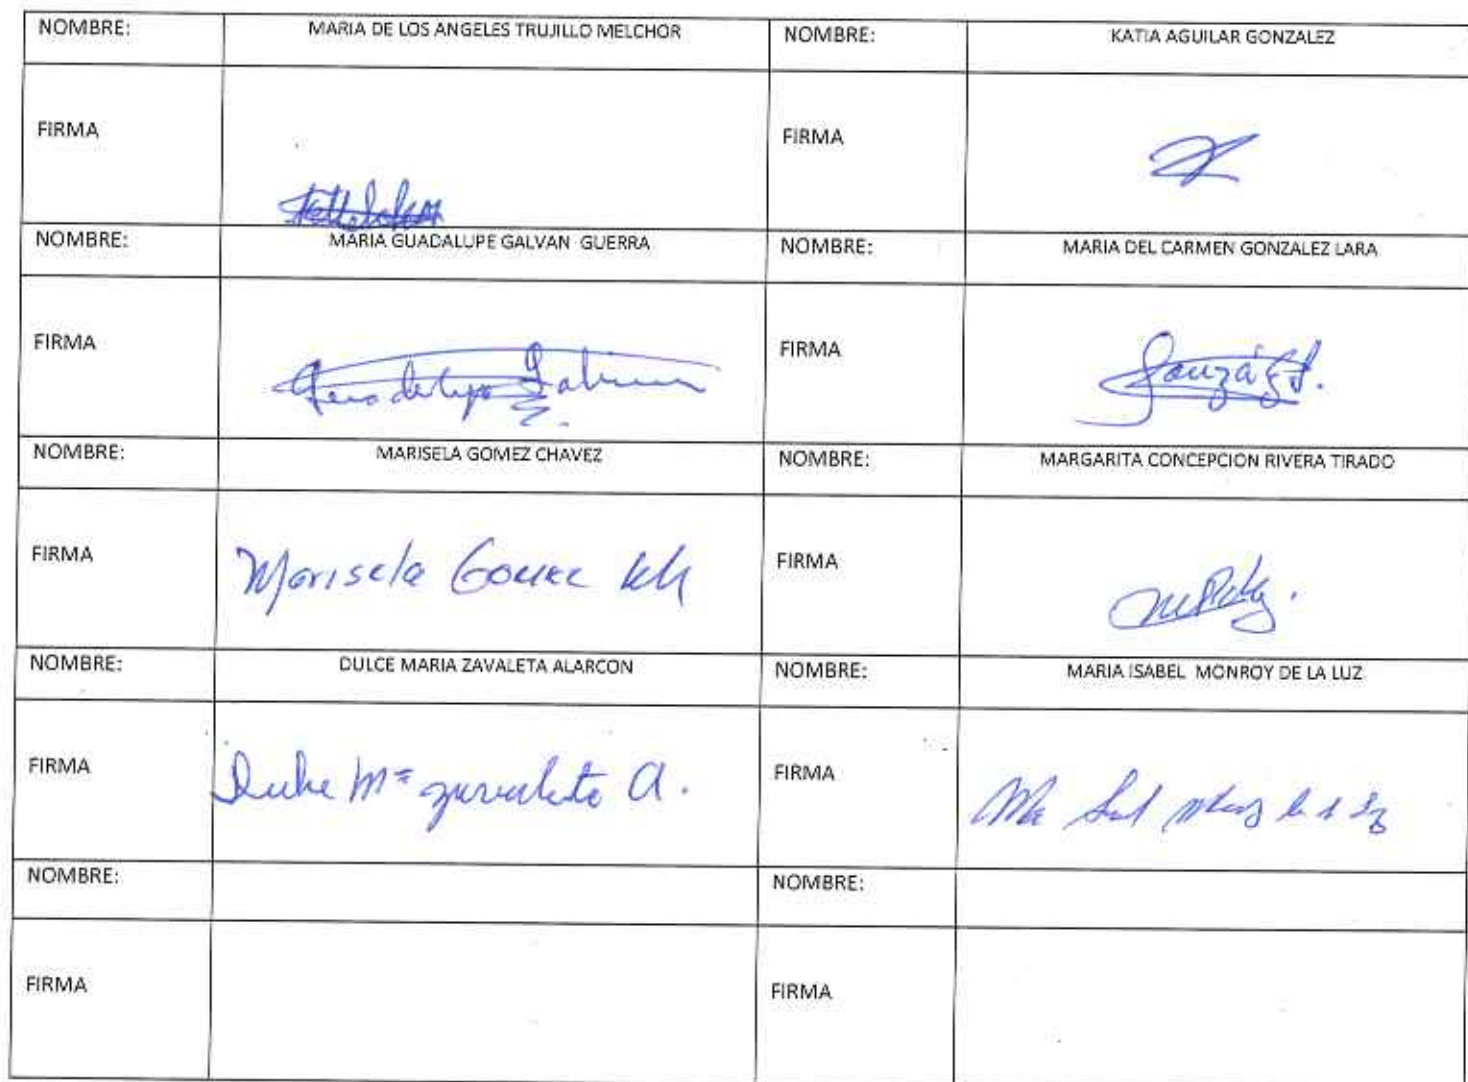 NOMBRE: MARIA DE LOS ANGELES TRUJILLO MELCHOR NOMBRE: KATIA AGUILAR GONZALEZ
FIRMA FIRMA
NOMBRE: MARIA GUADALUPE GALVAN GUERRA NOMBRE: MARIA DEL CARMEN GONZALEZ LARA
FIRMA Guadalupe Galvan FIRMA
NOMBRE: MARISELA GOMEZ CHAVEZ NOMBRE: MARGARITA CONCEPCION RIVERA TIRADO
FIRMA Marisela Gomez FIRMA
NOMBRE: DULCE MARIA ZAVALETA ALARCON NOMBRE: MARIA ISABEL MONROY DE LA LUZ
FIRMA Dulce Mª zavaleta A. FIRMA
NOMBRE: NOMBRE:
FIRMA FIRMA